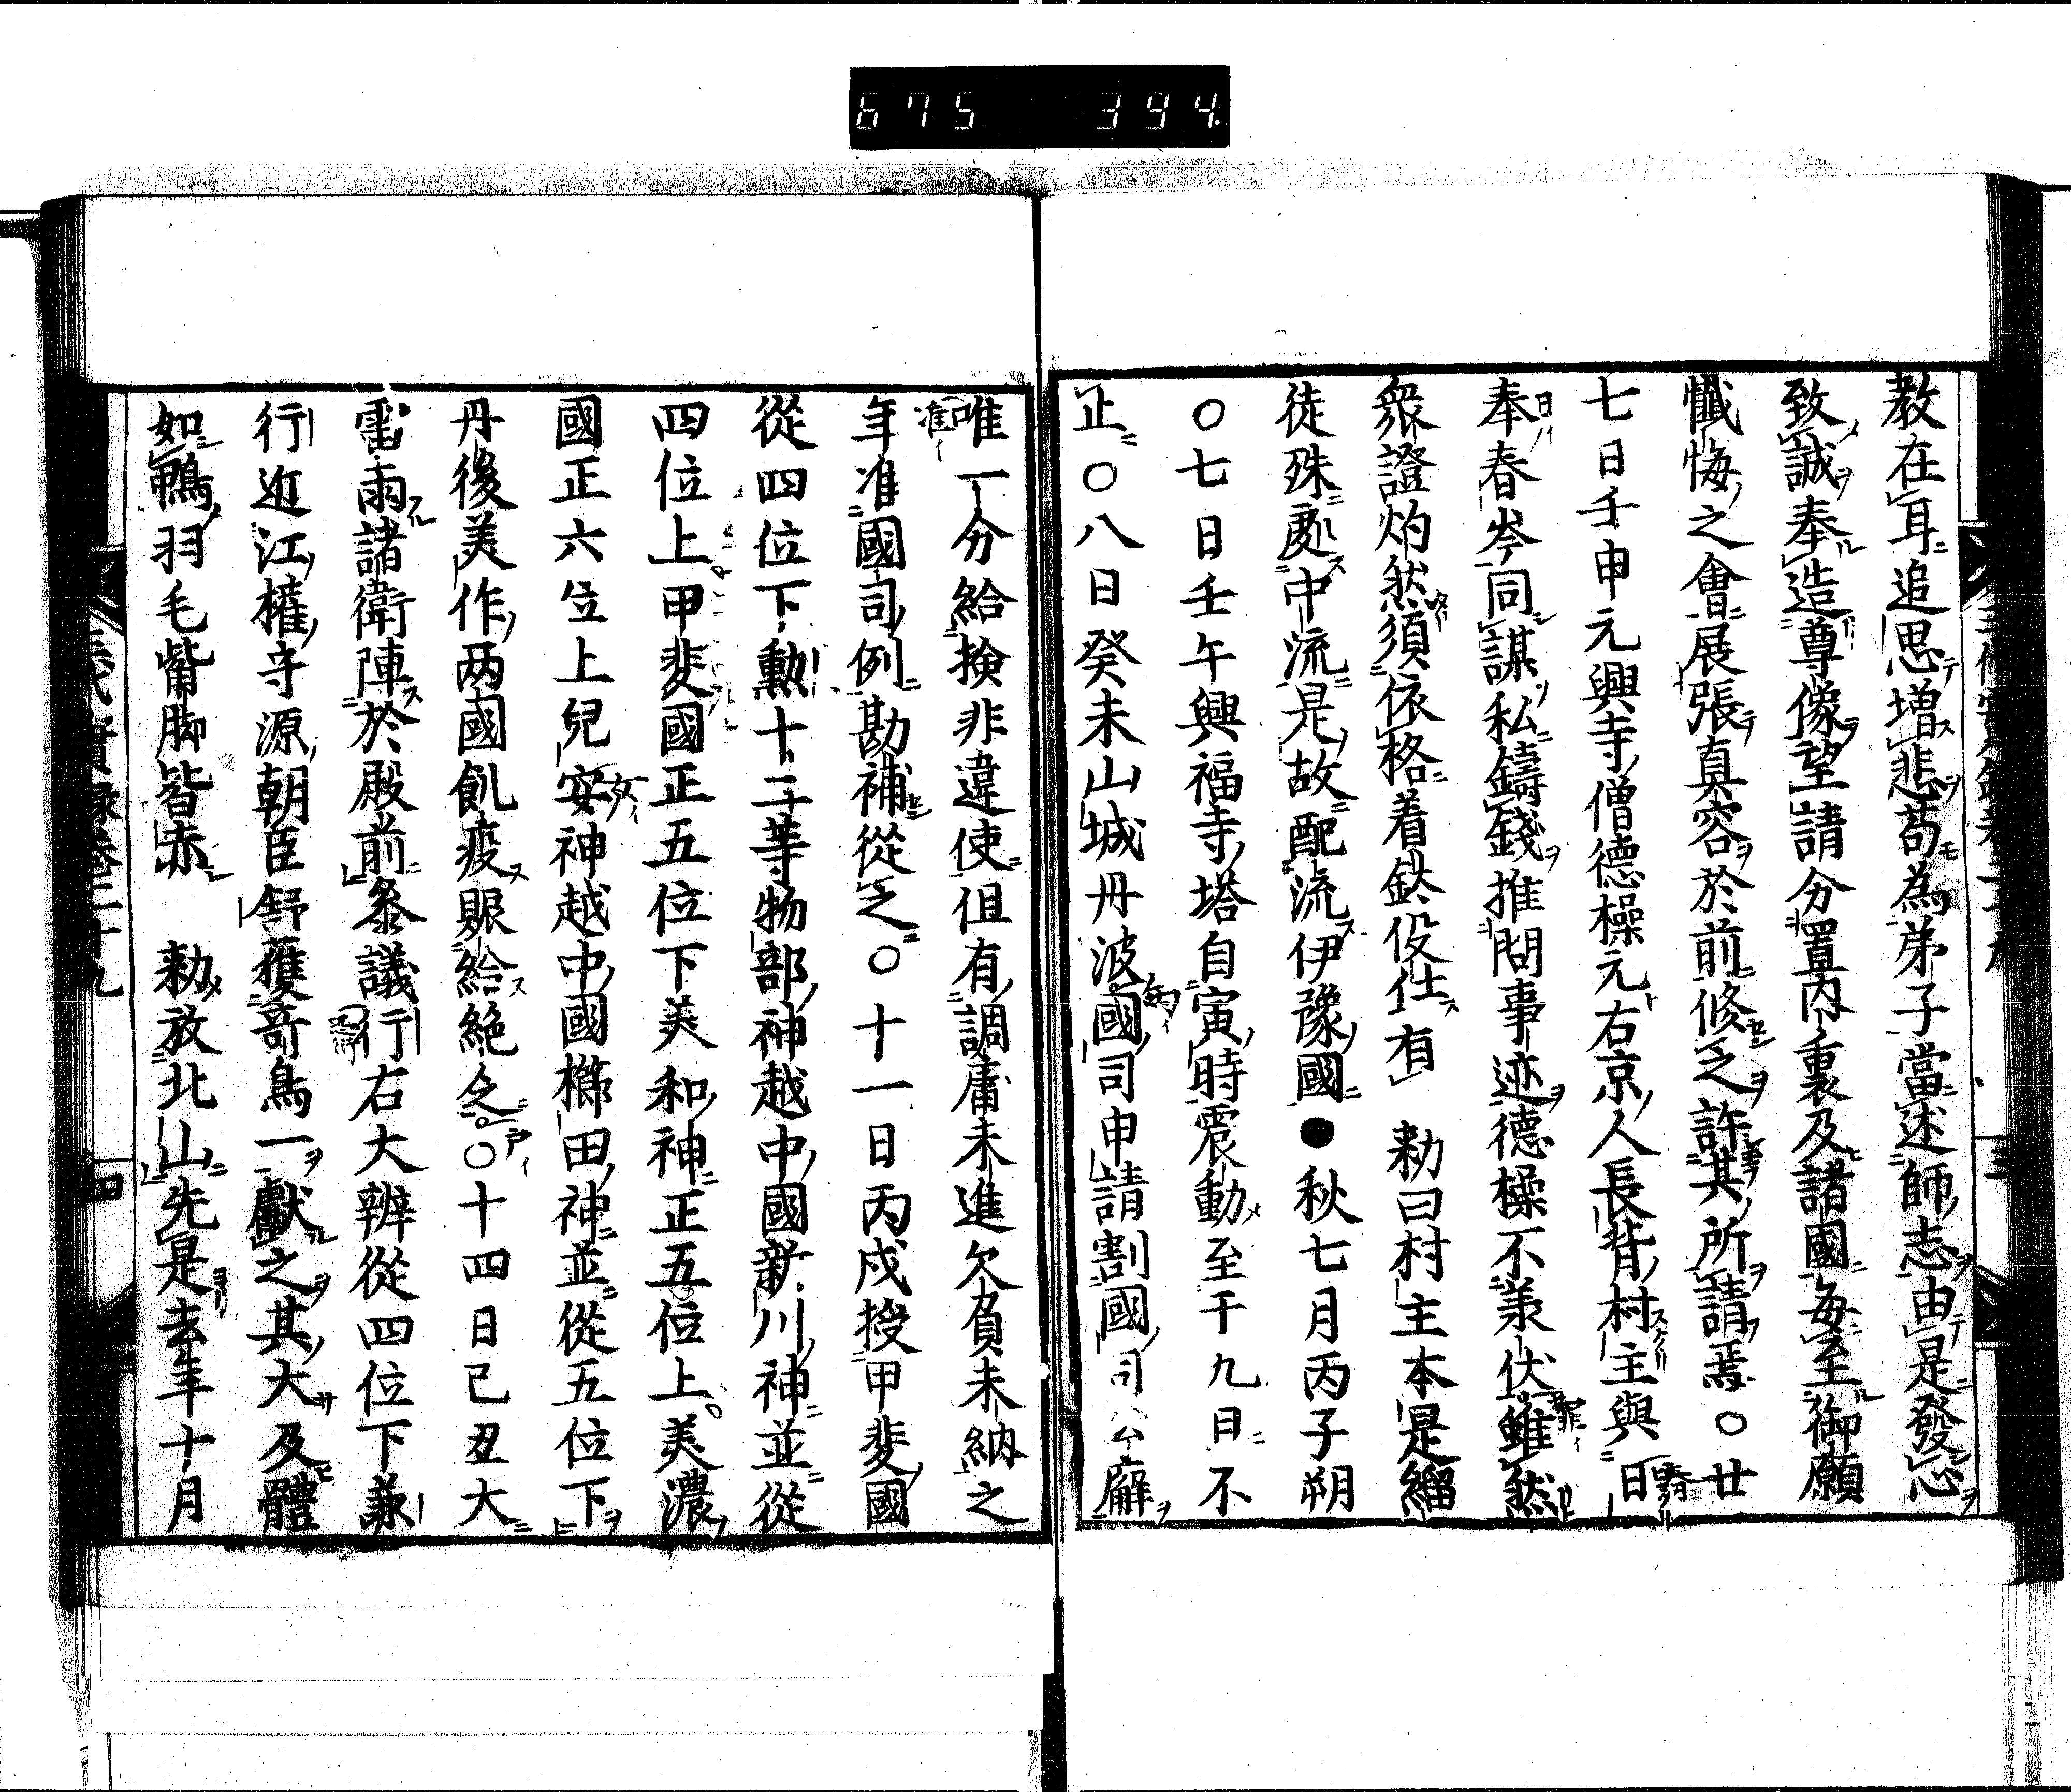 675 394
教在耳追思増悲苟為弟子當述師志由是發心
致誠奉造尊像望請分置内裏及諸國毎至御願
懺悔之會展張真容於前修之許其所請焉〇廿
七日壬申元興寺僧徳操元右京人長背村主與日
奉春岑同謀私鑄錢推問事迹徳操不承伏雖然
衆證灼然須依格着鈦役仕有　勅曰村主本是緇
徒殊處中流是故配流伊豫國●秋七月丙子朔
〇七日壬午興福寺塔自寅時震動至于九日不
止〇八日癸未山城丹波國司申請割國司公廨
唯一分給検非違使但有調庸未進欠負未納之
年准國司例勘補從之〇十一日丙戌授甲斐國
從四位下勳十二等物部神越中國新川神並從
四位上甲斐國正五位下美和神正五位上美濃
國正六位上兒安神越中國櫛田神並從五位下
丹後美作两國飢疫賑給絶乏〇十四日己丑大
雷雨諸衛陣於殿前參議行右大辨從四位下兼
行近江權守源朝臣舒獲奇鳥一獻之其大及體
如鴨羽毛觜脚皆赤　勅放北山先是去年十月
三代實録卷二十九
四